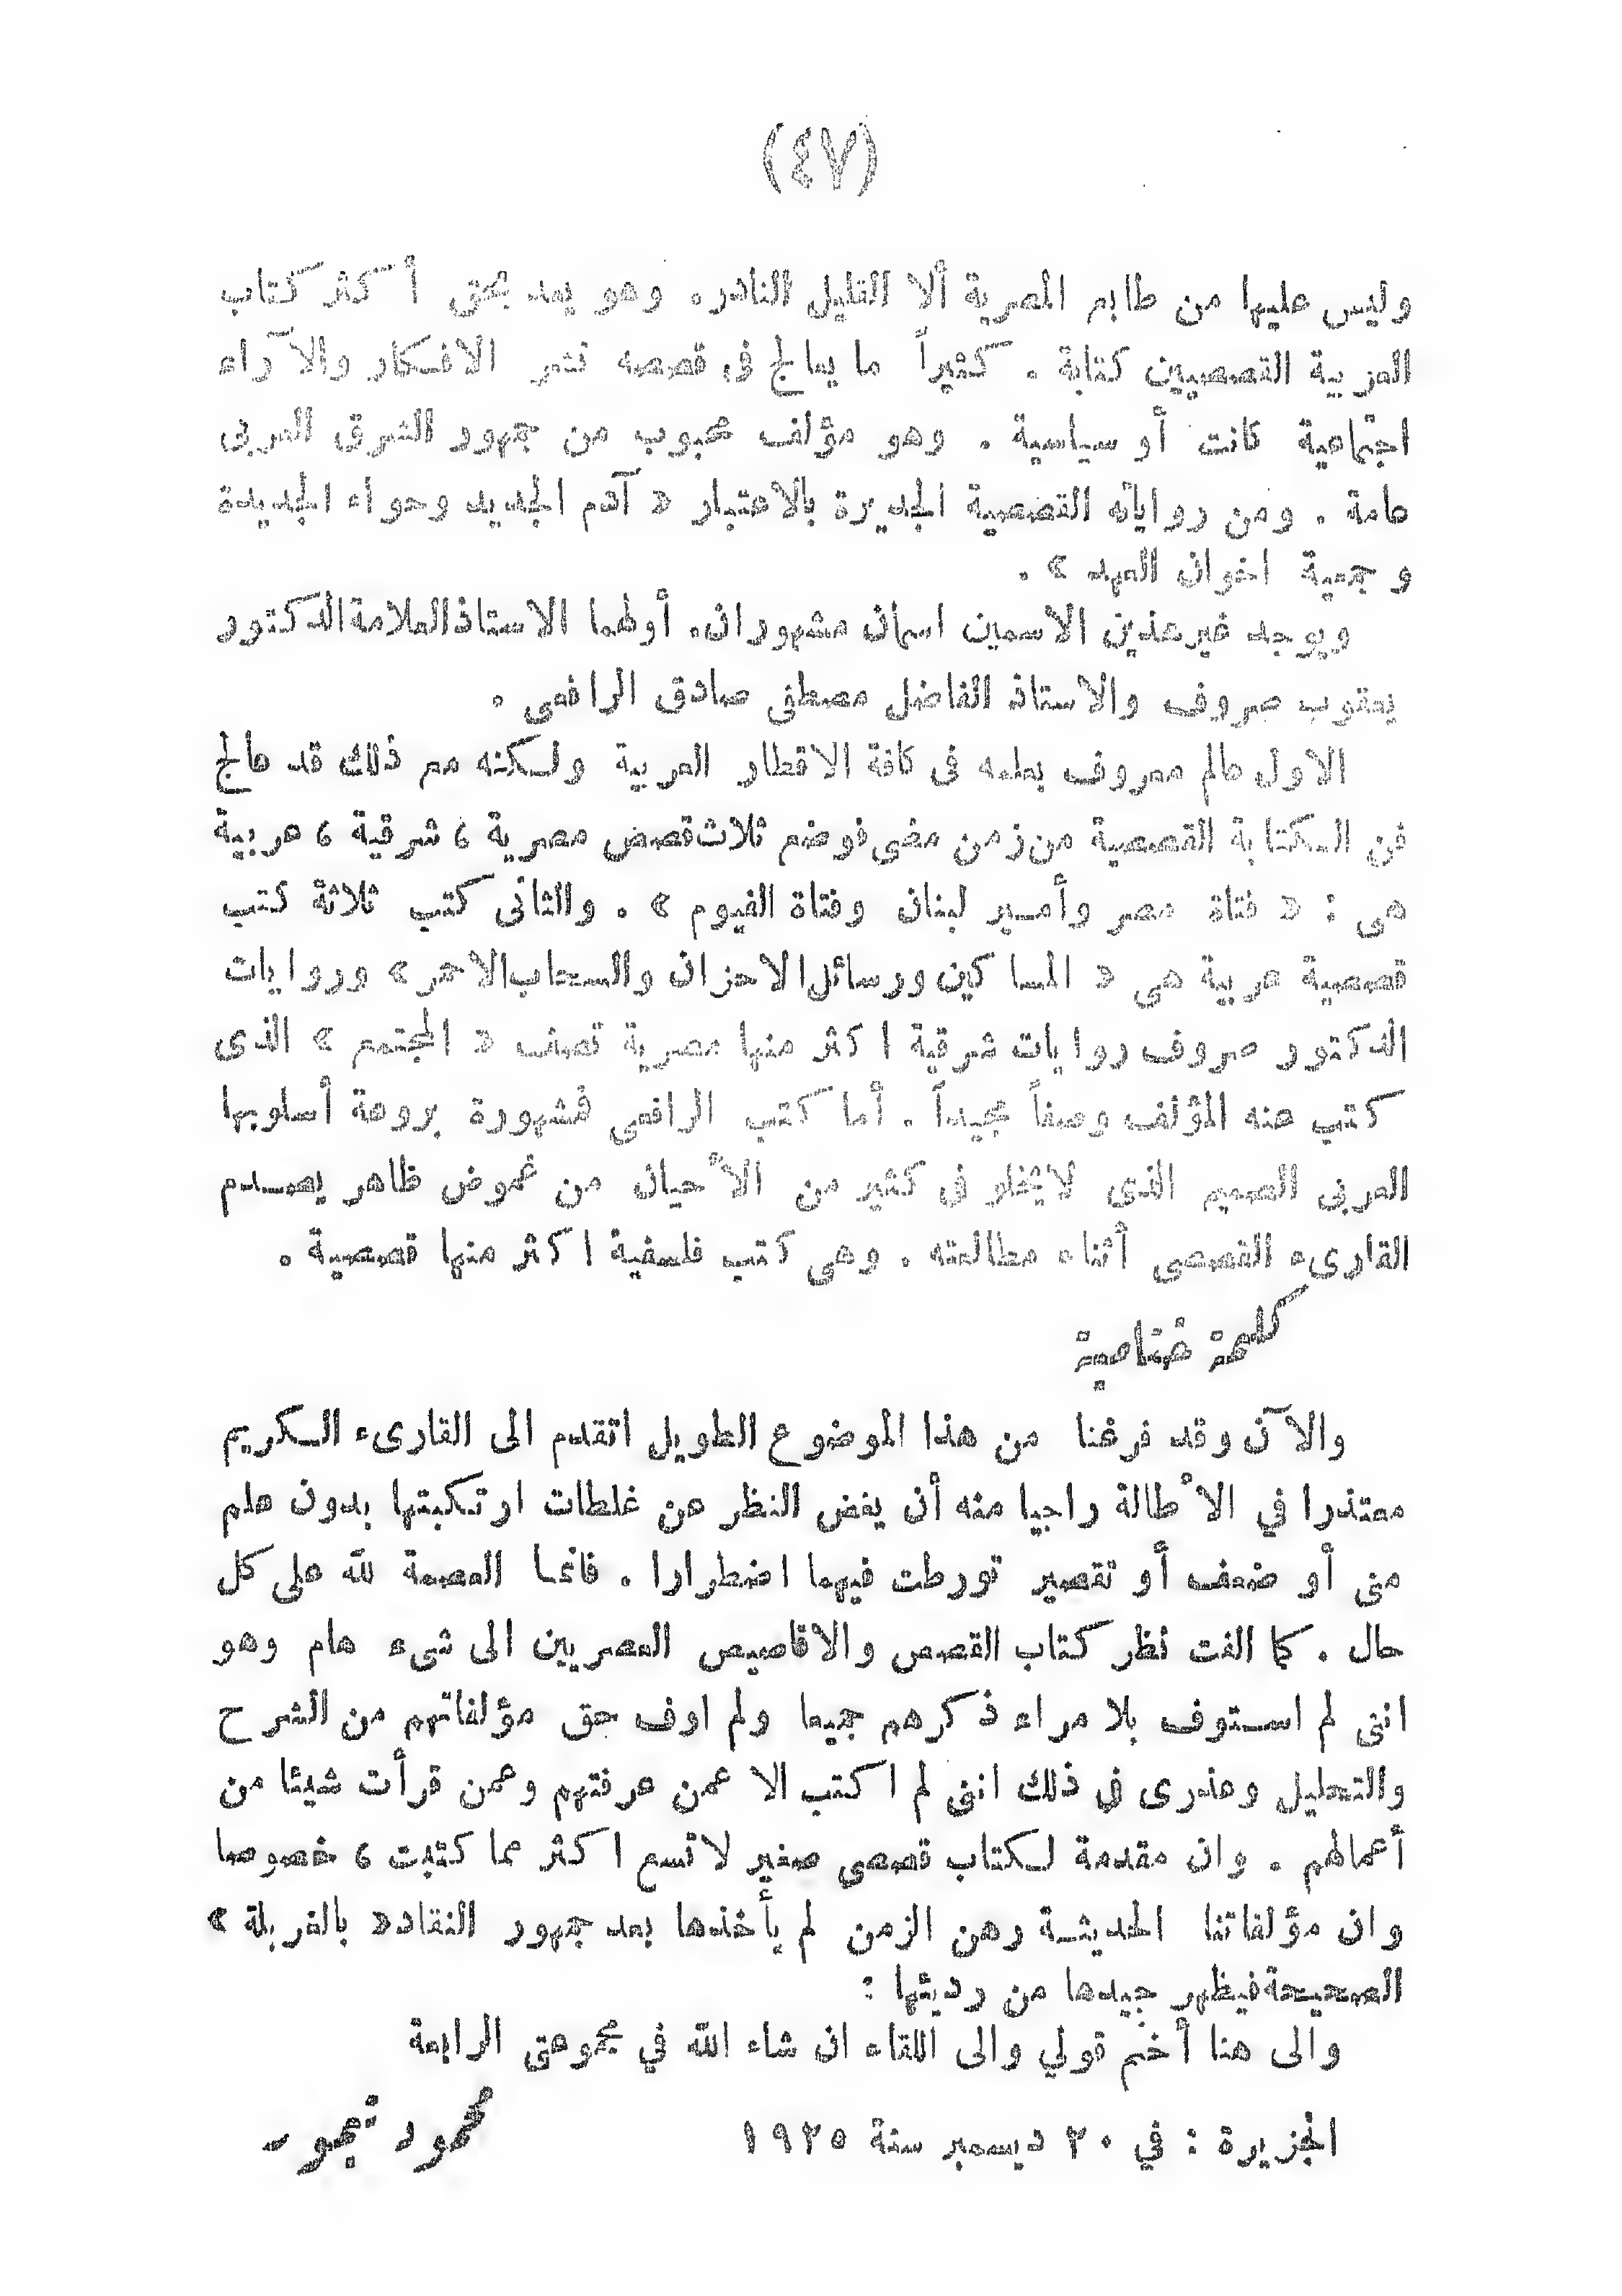 (٤٧)
وليس عليها من طابع المصرية ألا القليل النادر. وهو يعد بحق أكثر كتاب
العربية القصصيين كتابة . كثيراً ما يعالج فى قصصه نشر الافكار والآراء
اجتماعية كانت أو سياسية . وهو مؤلف محبوب من جمهور الشرق العربى
عامة . ومن رواياته القصصية الجديرة بالاعتبار « آدم الجديد وحواء الجديدة
وجمعية اخوان العهد » .
ويوجد غير هذين الاسمين اسمان مشهوران. أولهما الاستاذ العلامة الدكتور
يعقوب صروف والاستاذ الفاضل مصطفى صادق الرافعى .
الاول عالم معروف بعلمه فى كافة الاقطار العربية ولكنه مع ذلك قد عالج
فن الكتابة القصصية من زمن مضى فوضع ثلاث قصص مصرية ، شرقية ، عربية
هى : « فتاة مصر وأمير لبنان وفتاة الفيوم » . والثانى كتب ثلاثة كتب
قصصية عربية هى « المساكين ورسائل الاحزان والسحاب الاحمر » وروايات
الدكتور صروف روايات شرقية اكثر منها مصرية تصف « المجتمع » الذى
كتب عنه المؤلف وصفاً مجيداً . أما كتب الرافعى فمشهورة بروعة أسلوبها
العربى الصميم الذى لايخلو فى كثير من الأحيان من غموض ظاهر يصدم
القارىء القصصى أثناء مطالعته . وهى كتب فلسفية اكثر منها قصصية .
كلمة ختامية
والآن وقد فرغنا من هذا الموضوع الطويل اتقدم الى القارىء الكريم
معتذرا في الأطالة راجيا منه أن يغض النظر عن غلطات ارتكبتها بدون علم
منى أو ضعف أو تقصير تورطت فيهما اضطرارا . فانما العصمة لله على كل
حال . كما الفت نظر كتاب القصص والاقاصيص المصريين الى شىء هام وهو
اننى لم استوف بلا مراء ذكرهم جميعا ولم اوف حق مؤلفاتهم من الشرح
والتحليل وعذرى فى ذلك اننى لم اكتب الا عمن عرفتهم وعمن قرأت شيئا من
أعمالهم . وان مقدمة لكتاب قصصى صغير لا تسع اكثر مما كتبت ، خصوصا
وان مؤلفاتنا الحديثة رهن الزمن لم يأخذها بعد جمهور النقاد « بالغربلة »
الصحيحة فيظهر جيدها من رديئها :
والى هنا أختم قولي والى اللقاء ان شاء الله في مجموعتى الرابعة
الجزيرة : في ٢٠ ديسمبر سنة ١٩٢٥ محمود تيمور